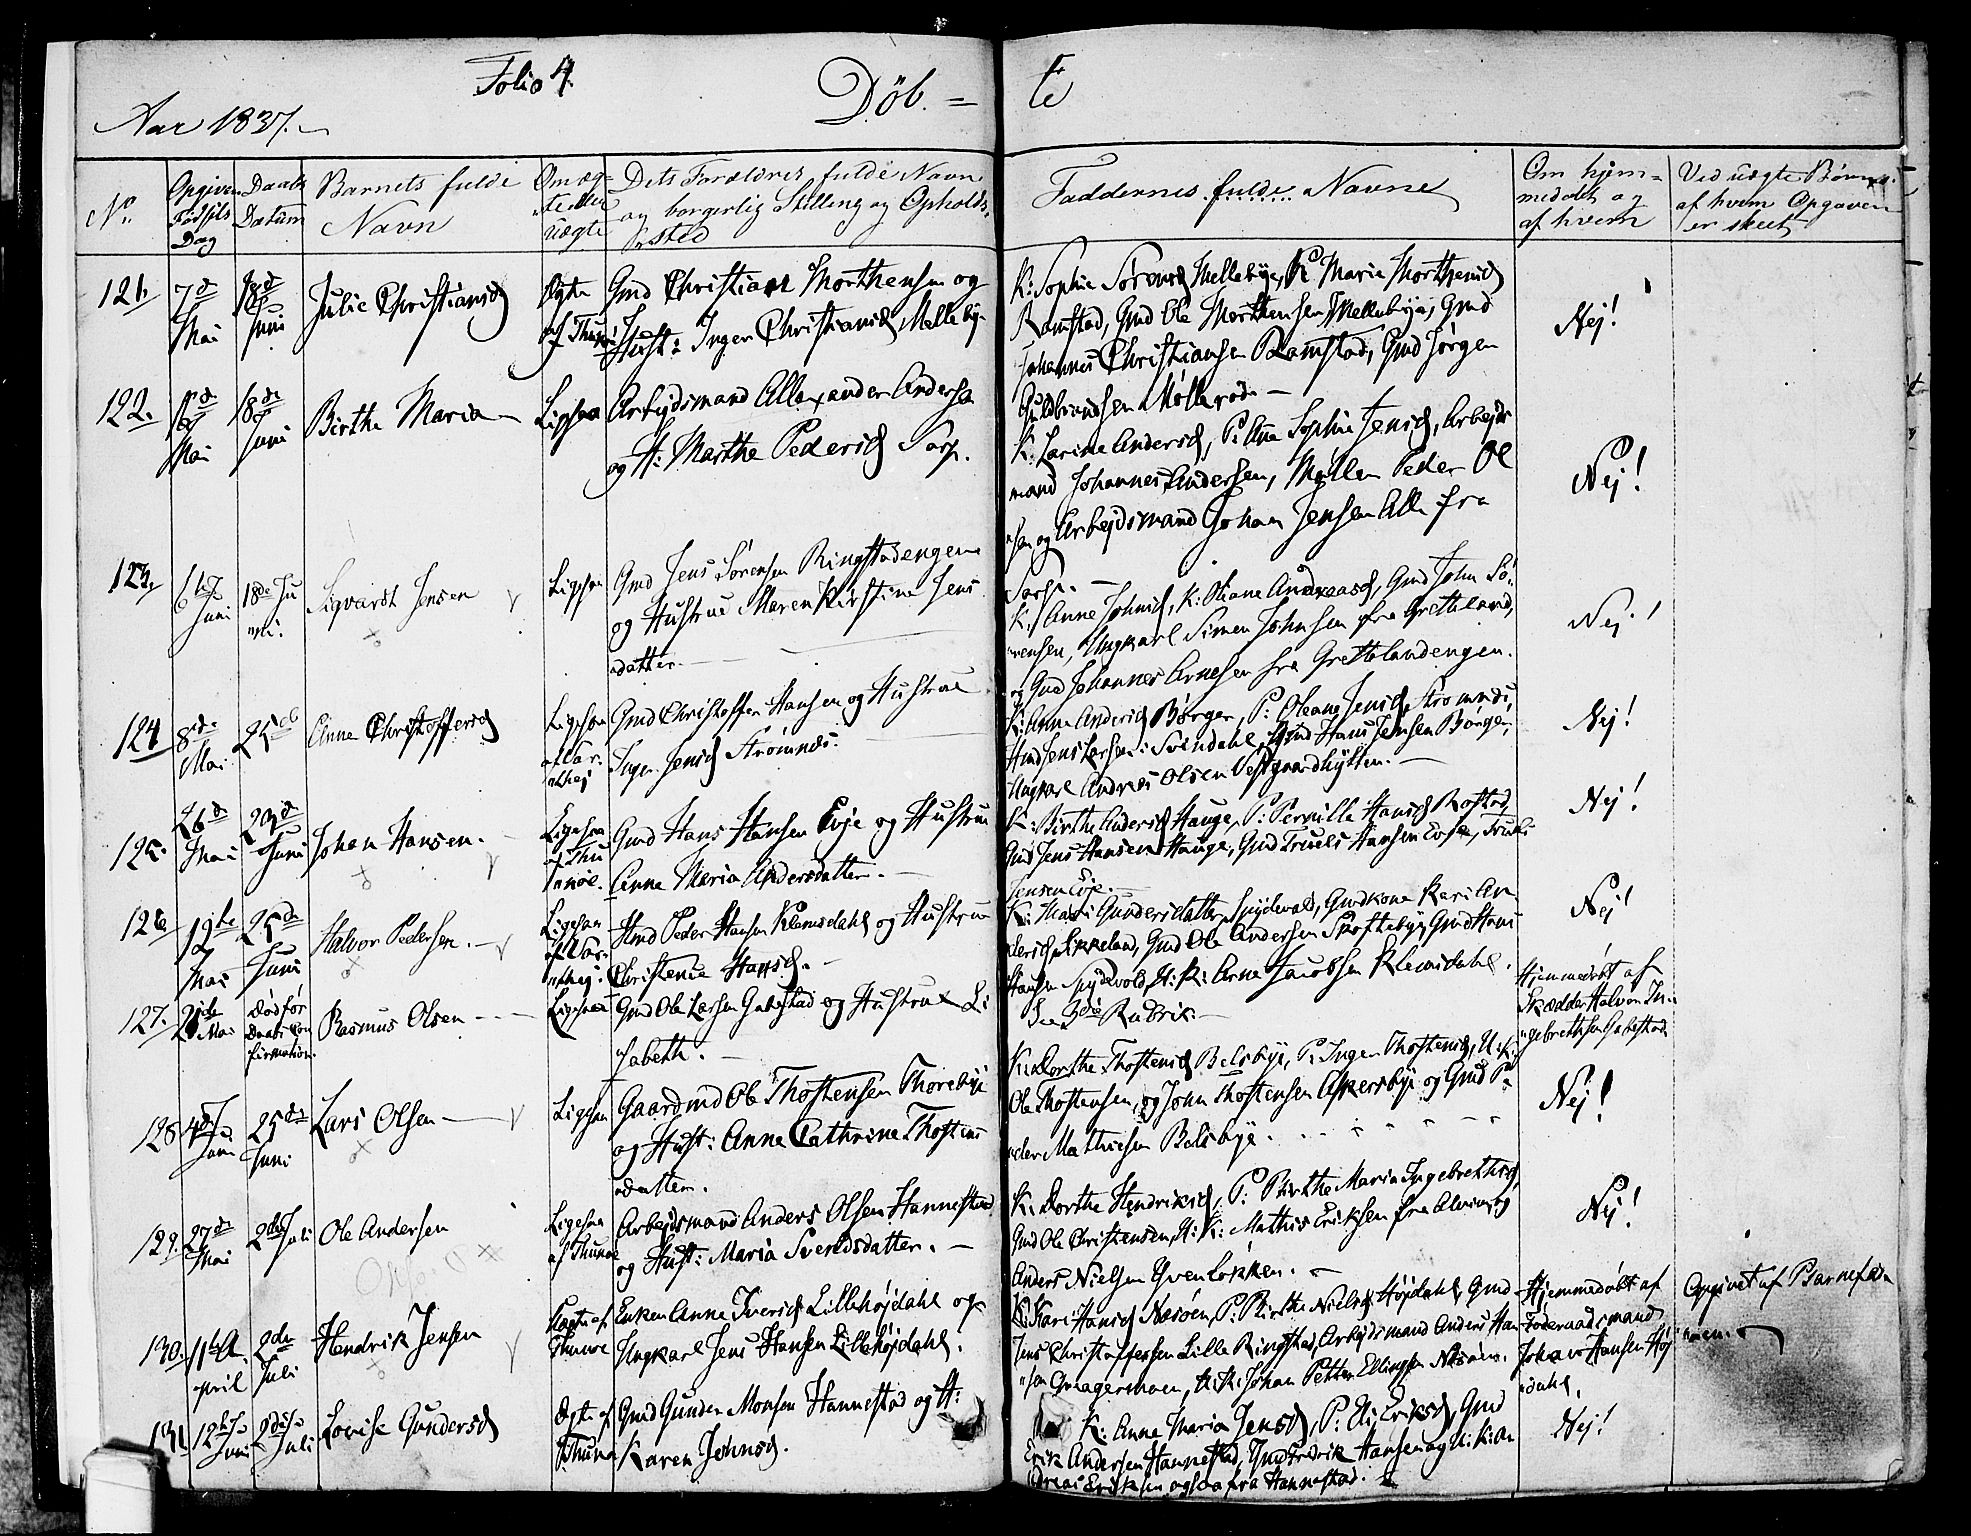 Folio 4.
Döb. = te
Aar 1837.
No.
Opgiven Fødsels Dag
Daabs Datum
Barnets fulde Navn
Om æg-te eller uægte
Dets Forældres fulde Navn og borgerlig Stilling og Opholds-sted
Faddernes fulde Navne
Om hjem-medøbt og af hvem
Ved uægte Børn af hvem Opgaven er skeet
121.
7de Mai
18de Juni
Julie Christiansd
Ægte
Gmd Christian Morthensen og
Hust: Inger Christiansd Melleby
K: Sophie Mellebye, P: Marie Morthensd
Ramstad, Gmd Ole Morthensen Mellebye, Gmd
Johannes Christiansen Ramstad, Gmd Jørgen
Guldbrandsen Møllerød.
Nej!
122.
Mai
18de Juni
Birthe Maria
Ligesaa
Arbejdsmand Allexander Andersen
og H: Marthe Pedersd Sarp.
K: Andersd, P: Ane Sophie Jensd, Arbejds
mand Johannes Andersen, Møller Peder Ol
sen og Arbejdsmand Johan Jensen Alle fra
Sarp.
Nej!
123.
6te Juni
18de Ju
ni.
Sigvardt Jensen
Ligesaa
Gmd Jens Sørensen Ringstadengen
og Hustrue Maren Kirstine Jens
datter.
K: Anne Johnsd, K: Oliane Andreasd, Gmd John Sø
rensen, Ungkarl Simen Johnsen fra Grethland,
og Gmd Johannes Arnesen fra Gretlandengen.
Nej!
124
8de Mai
25de
Anne Christoffersd
Ligesaa
Gmd Christoffer Hansen og Hustrue
Inger Jensd Strømnes.
K: Anne Andersd Børger, P: Oleane Jensd Strømnes,
Gmd Jens Larsen Svendahl, Gmd Hans Jensen Børger,
Ungkarl Andreas Olsen Vestgaardhytten.
Nej!
125.
26de Mai
23de Juni
Johan Hansen.
Ligesaa
af Thu
nøe.
Gmd Hans Hansen Evje og Hustrue
Anne Maria Andersdatter.
K: Birthe Andersd Hauge, P: Pernille Hansd Rostad,
Gmd Jens Hansen Hauge, Gmd Truels Hansen Evje, Truls
Jensen Evje.
Nej!
126
12te Mai
25de Juni
Halvor Pedersen.
Ligesaa
Hmd Peder Hansen Klemsdahl og Hustrue
Christence Hansd.
K: Mari Gundersdatter Spydevold, Gmdkone Kari An
dersd, Gmd Ole Andersen Skoftebye, Gmd Hans
Hansen Spydevold, U:K: Arne Jacobsen Klemsdahl.
Nej!
127.
21de Mai
Død før
Daabs Con
firmation.
Rasmus Olsen
Ligesaa
Gmd Ole Larsen Gabestad og Hustrue Li
sabeth.
See 3die Rubrik.
Hjemmedøbt af
Skrædder Halvor In
gebrethsen Gabestad
128
4de Juni
25de Juni
Lars Olsen
Ligesaa
Gaardmd Ole Thostensen Thorebye
og Hust: Anne Cathrine Thostens
datter.
K: Dorthe Thostensd Belsbye, P: Inger Thostensd, U:K:
Ole Thostensen, og John Thostensen Askersbye og Gmd Pe
der Mathiesen Belsbye.
Nej!
129.
27de Mai
2de Juli
Ole Andersen
Ligesaa
af Thunøe
Arbejdsmand Anders Olsen Hannestad
og Hust: Maria Svendsdatter.
K: Dorthe Hendriksd, P: Birthe Maria Ingebrethsd,
Gmd Ole Christensen, U:K: Mathis Eriksen fra Alvim og
Anders Nielsen Yvenløkken.
Nej!
130.
11te A
pril
2de Juli
Hendrik Jensen
Uægte af
Thunøe
Enken Anne Iversd Lillehøjdahl og
Ungkarl Jens Hansen Lillehøjdahl.
K: Kari Hansd Næsøen, P: Birthe Nielsd Højdahl, Gmd
Jens Christoffersen Lille Ringstad, Arbejdsmand Anders Han
sen, U:K: Johan Petter Ellingsen Næsøen.
Hjemmedøbt af
Føderaadsmand
Johan Hansen Høj
dahl.
Opgivet af Barnefad
eren.
131
12te Juni
2de Juli
Lovise Gundersd
Ægte af
Thunø
Gmd Gunder Monsen Hannestad og H:
Karen Johnsd.
K: Anne Maria Jensd, P: Eli Eriksd, Gmd
Erik Andersen Hannestad, Gmd Fredrik Hansen og U:K: An
dreas Eriksen ogsaa fra Hannestad.
Nej!